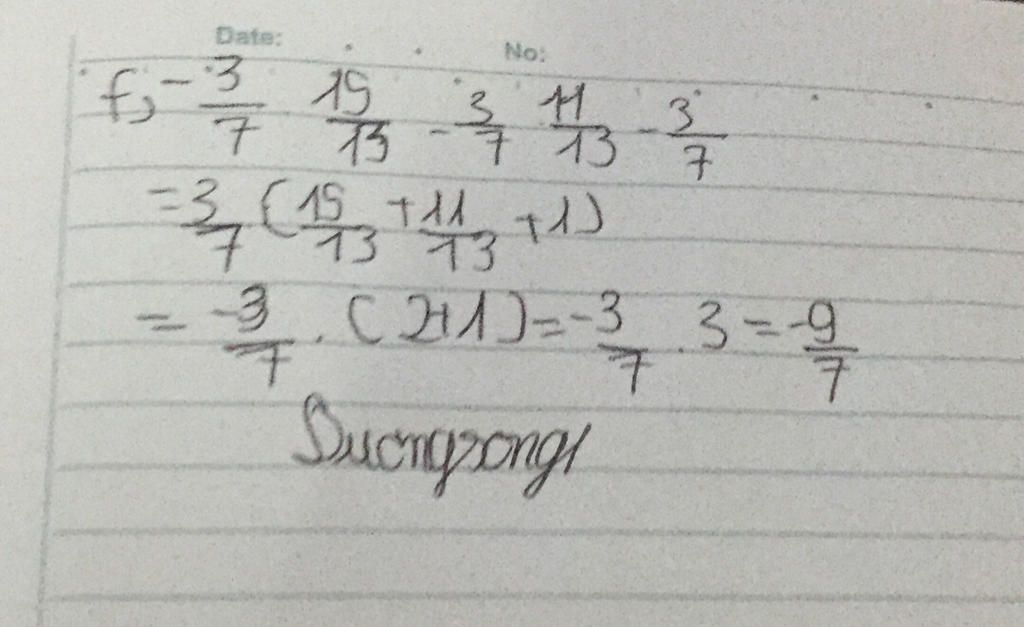 Date: No:
f, -3/7 15/13 - 3/7 11/13 - 3/7
= 3/7 (15/13 + 11/13 + 1)
= -3/7 . (2+1) = -3/7 . 3 = -9/7